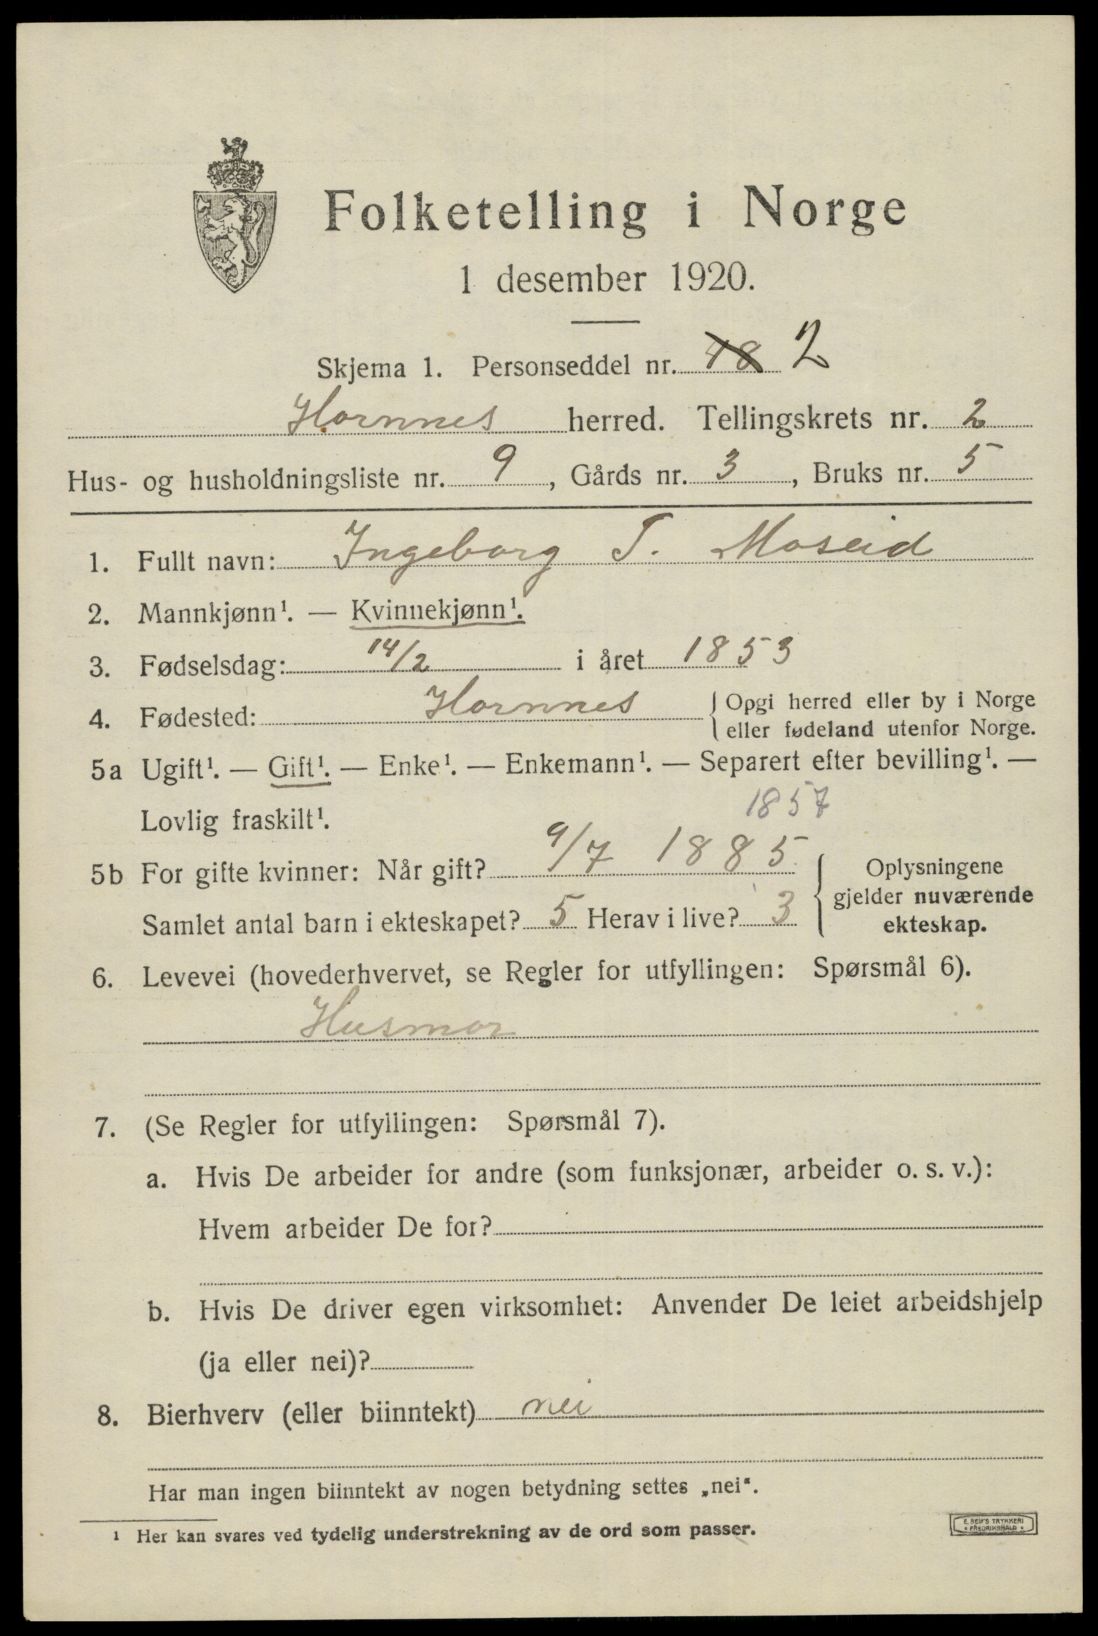 Folketelling i Norge
1 desember 1920.
Skjema 1. Personseddel nr. 48 2
Hornnes herred. Tellingskrets nr. 2
Hus- og husholdningsliste nr. 9, Gårds nr. 3, Bruks nr. 5
1. Fullt navn: Ingeborg T. Moseid
2. Mannkjønn¹. — Kvinnekjønn¹.
3. Fødselsdag: 14/2 i året 1853
4. Fødested: Hornnes { Opgi herred eller by i Norge
eller fødeland utenfor Norge.
5a Ugift¹. — Gift¹. — Enke¹. — Enkemann¹. — Separert efter bevilling¹. —
Lovlig fraskilt¹.
1857
5b For gifte kvinner: Når gift? 9/7 1885
Samlet antal barn i ekteskapet? 5 Herav i live? 3
{ Oplysningene
gjelder nuværende
ekteskap.
6. Levevei (hovederhvervet, se Regler for utfyllingen: Spørsmål 6).
Husmor
7. (Se Regler for utfyllingen: Spørsmål 7).
a. Hvis De arbeider for andre (som funksjonær, arbeider o. s. v.):
Hvem arbeider De for?
b. Hvis De driver egen virksomhet: Anvender De leiet arbeidshjelp
(ja eller nei)?
8. Bierhverv (eller biinntekt) nei
Har man ingen biinntekt av nogen betydning settes „nei“.
¹ Her kan svares ved tydelig understrekning av de ord som passer.
E. SEM'S TRYKKERI
• FREDRIKSHALD •